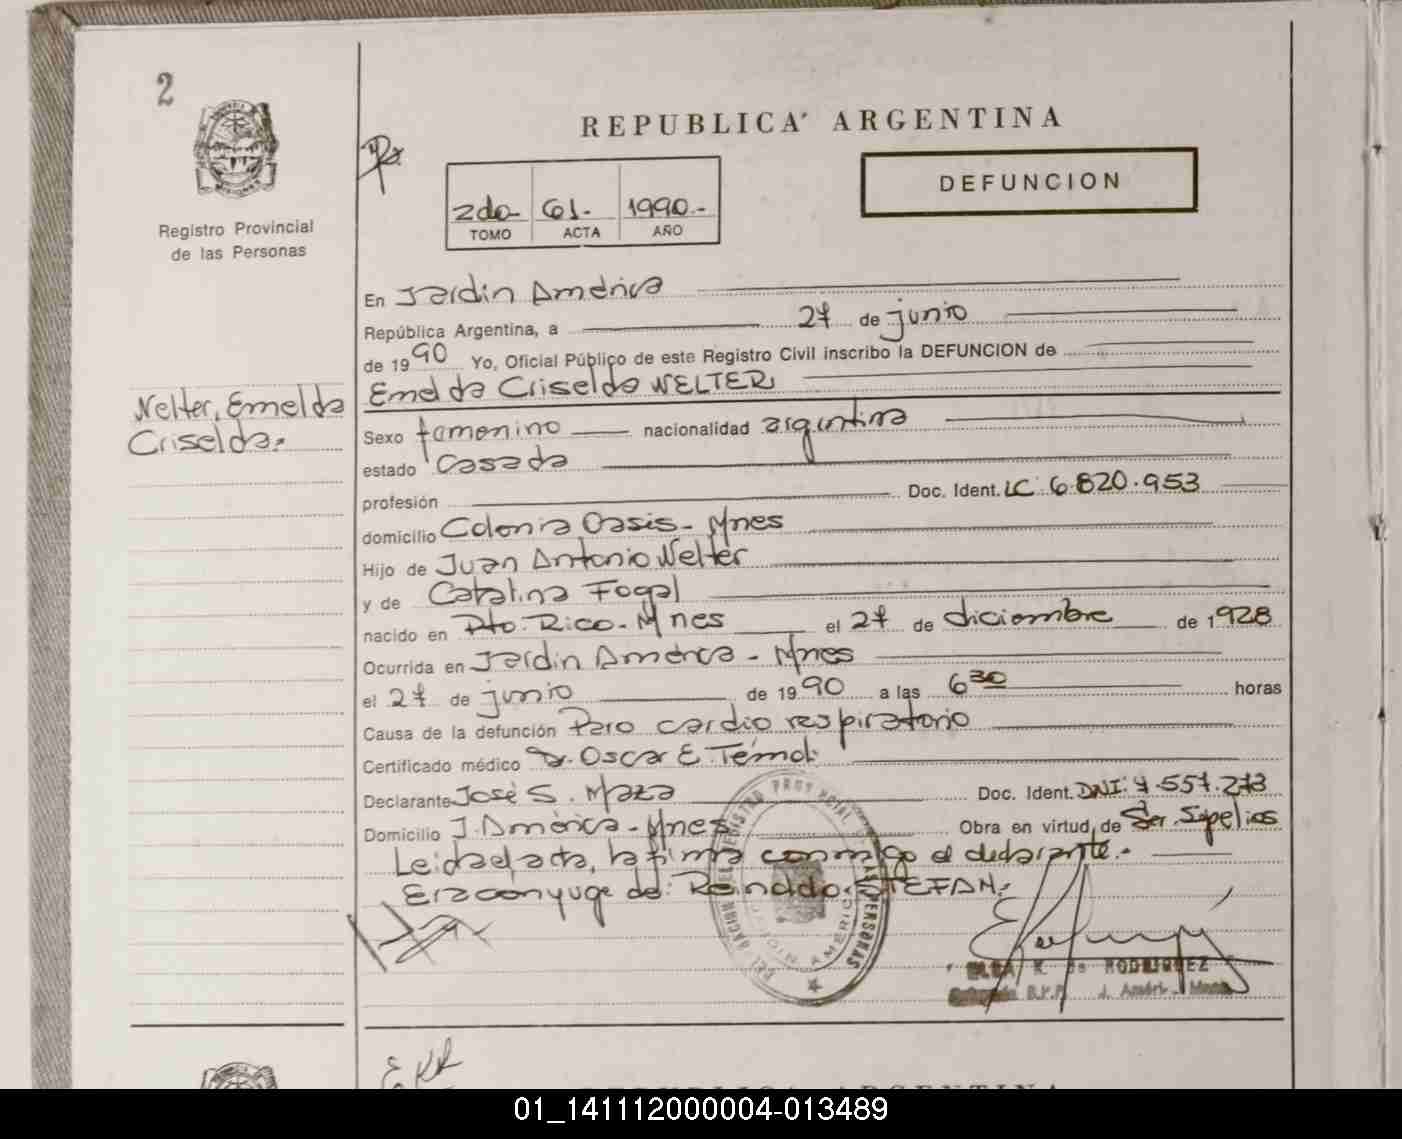 2
REPUBLICA ARGENTINA
DEFUNCION
2do- 61.- 1990.-
TOMO ACTA AÑO
Registro Provincial
de las Personas
En Jardin América
República Argentina, a 27 de junio
de 1990 Yo, Oficial Público de este Registro Civil inscribo la DEFUNCION de
Emelda Criselda WELTER
Welter, Emelda
Criselda.-
Sexo femenino nacionalidad argentina
estado Casada
profesión Doc. Ident. LC 6.820.953
domicilio Colonia Oasis- Mnes
Hijo de Juan Antonio Welter
y de Catalina Fogal
nacido en Pto. Rico- Mnes el 27 de diciembre de 1928
Ocurrida en Jardin América - Mnes
el 27 de junio de 1990 a las 6 30 horas
Causa de la defunción Paro cardio respiratorio
Certificado médico Dr. Oscar E.
Declarante José S. Maza Doc. Ident. DNI: 7.557.273
Domicilio J. América - Mnes Obra en virtud de Ser. Sepelios
Leida el acta, la firma conmigo el declarante.-
Era conyuge de: Reinaldo STEFAN.-
REGISTRO PROVINCIAL DE LAS PERSONAS
JARDIN AMERICA
ELSA K. de RODRIGUEZ
Delegada R.P.P. J. Améric- Mnes
REPUBLICA ARGENTINA
01_141112000004-013489